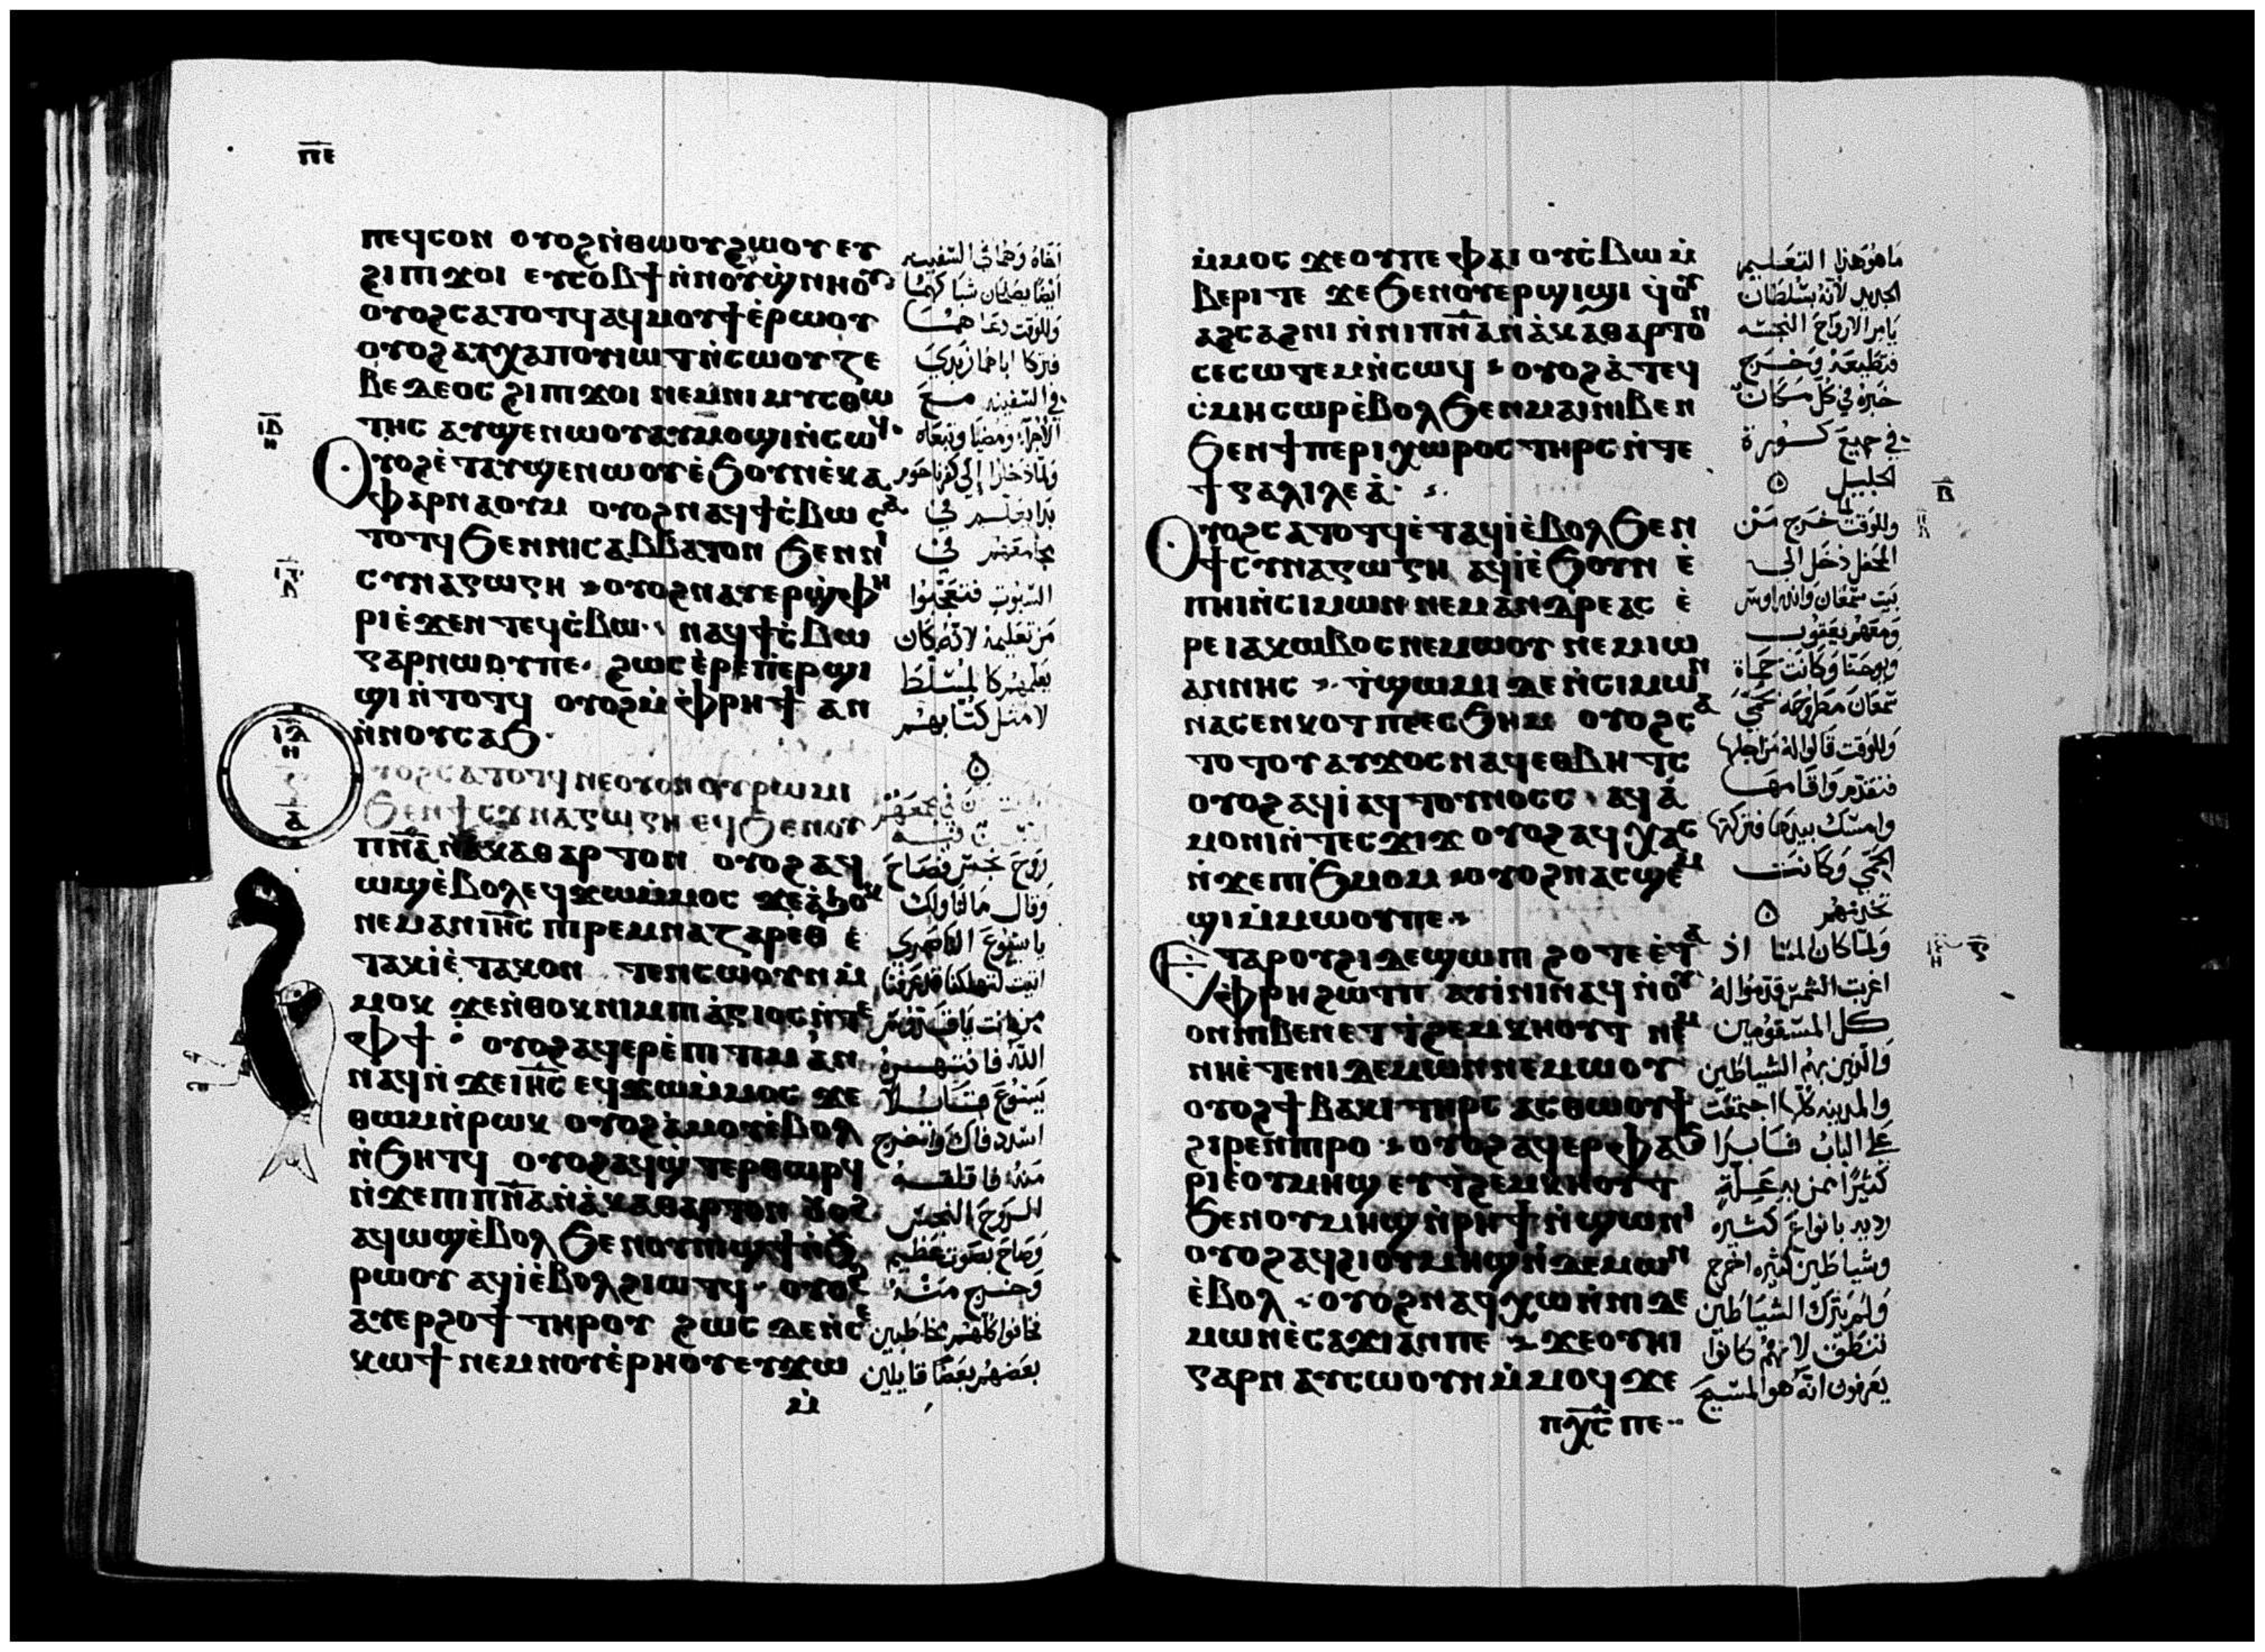 ⲡⲉ
ⲡⲉϥⲥⲟⲛ ⲟⲩⲟϩⲛ̀ⲑⲱⲟⲩϩⲱⲟⲩ ⲉⲩ
ϩⲓⲡⲓϫⲟⲓ ⲉⲩⲥⲟⲃϯ ⲛ̀ⲛⲟⲩϣ̀ⲛⲏⲟⲩ
ⲟⲩⲟϩⲥⲁⲧⲟⲧϥ ⲁϥⲙⲟⲩϯ ⲉ̀ⲣⲱⲟⲩ
ⲟⲩⲟϩ ⲁⲩⲭⲁⲡⲟⲩⲓⲱⲧ ⲛ̀ⲥⲱⲟⲩ ⲍⲉ
ⲃⲉⲇⲉⲟⲥ ϩⲓⲡⲓϫⲟⲓ ⲛⲉⲙⲛⲓⲙⲓⲥⲑⲱ
ⲧⲏⲥ ⲁⲩϣⲉⲛⲱⲟⲩ ⲁⲩⲙⲟϣⲓⲛ̀ⲥⲱϥ
ⲟⲩⲟϩⲉ̀ⲧⲁⲩϣⲉⲛⲱⲟⲩ ⲉ̀ϧⲟⲩⲛⲉ̀ⲕⲁ
ⲫⲁⲣⲛⲁⲟⲩⲙ ⲟⲩⲟϩ ⲛⲁϥϯⲥ̀ⲃⲱ ⲥⲁ
ⲧⲟⲧϥ ϧⲉⲛⲛⲓⲥⲁⲃⲃⲁⲧⲟⲛ ϧⲉⲛⲛⲓ
ⲥⲩⲛⲁⲅⲱⲅⲏ ⲟⲩⲟϩ ⲛⲁⲩⲉⲣϣ̀ⲫⲏ
ⲣⲓ ⲉ̀ϫⲉⲛ ⲧⲉϥⲥ̀ⲃⲱ ⲛⲁϥϯⲥ̀ⲃⲱ
ⲅⲁⲣⲛⲱⲟⲩⲡⲉ ϩⲱⲥ ⲉ̀ⲣⲉⲡⲉⲣϣⲓ
ϣⲓ ⲛ̀ⲧⲟⲧϥ ⲟⲩⲟϩⲙ̀ⲫⲣⲏϯ ⲁⲛ
ⲛ̀ⲛⲟⲩⲥⲁϧ
ⲟⲩⲟϩⲥⲁⲧⲟⲧϥ ⲛⲉⲟⲩⲟⲛ ⲟⲩⲣⲱⲙⲓ
ϧⲉⲛϯⲥⲩⲛⲁⲅⲱⲅⲏ ⲉϥϧⲉⲛⲟⲩ
ⲡⲛⲁ̄ ⲛ̀ⲁ̀ⲕⲁⲑⲁⲣⲧⲟⲛ ⲟⲩⲟϩ ⲁϥ
ⲱϣ ⲉ̀ⲃⲟⲗ ⲉϥϫⲱⲙ̀ⲙⲟⲥ ϫⲉⲁ̀ϧⲟⲕ
ⲛⲉⲙⲁⲛ ⲓⲏ̄ⲥ ⲡⲓⲣⲉⲙⲛⲁⲍⲁⲣⲉⲑ ⲉ̀
ⲧⲁⲕⲓ̀ ⲉ̀ⲧⲁⲕⲟⲛ ⲧⲉⲛⲥⲱⲟⲩⲛ ⲙ̀
ⲙⲟⲕ ϫⲉⲛ̀ⲑⲟⲕ ⲛⲓⲙ ⲡⲓⲁ̀ⲅⲓⲟⲥ ⲛ̀ⲧⲉ
ⲫϯ ⲟⲩⲟϩ ⲁϥⲉⲣⲉ̀ⲡⲓⲧⲓⲙⲁⲛ
ⲛⲁϥ ⲛ̀ϫⲉ ⲓⲏ̄ⲥ ⲉϥϫⲱⲙ̀ⲙⲟⲥ ϫⲉ
ⲑⲱⲙ ⲛ̀ⲣⲱⲕ ⲟⲩⲟϩ ⲁ̀ⲙⲟⲩ ⲉ̀ⲃⲟⲗ
ⲛ̀ϧⲏⲧϥ ⲟⲩⲟϩ ⲁϥϣ̀ⲧⲉⲣⲑⲱⲣϥ
ⲛ̀ϫⲉⲡⲓⲡⲛⲁ̄ ⲛ̀ⲁ̀ⲕⲁⲑⲁⲣⲧⲟⲛ ⲟⲩⲟϩ
ⲁϥⲱϣ ⲉ̀ⲃⲟⲗ ϧⲉⲛⲟⲩⲛⲓϣϯ ⲛ̀ϧ
ⲣⲱⲟⲩ ⲁϥⲓ̀ ⲉ̀ⲃⲟⲗ ϩⲓⲱⲧϥ ⲟⲩⲟϩ
ⲁⲩⲉⲣϩⲟϯ ⲧⲏⲣⲟⲩ ϩⲱⲥ ⲇⲉ ⲛ̀ⲥⲉ
ⲕⲱϯ ⲛⲉⲙ ⲛⲟⲩⲉ̀ⲣⲏⲟⲩ ⲉⲩϫⲱ
ⲙ̀
اخاه وهما في السفينه
ايضا يصلحان شباكهما
وللوقت دعاهما
فتركا اباهما زبدي
في السفينه مع
الاجراء ومضيا وتبعاه
ولما دخلوا الي كفرناحوم
بدا يعلم في
مجامعهم في
السبوت فتعجبوا
من تعليمه لانه كان
يعلمهم كالمسلط
لا مثل كتابهم
روح نجس فصاح
وقال ما لنا ولك
يا يسوع الناصري
اتيت لتهلكنا قد عرفنا
من انت يا قدوس
الله فانتهره
يسوع قايلا
اسدد فاك واخرج
منه فاقلقه
الروح النجس
وصاح بصوت عظيم
وخرج منه
فخافوا كلهم مخاطبين
بعضهم بعضا قايلين
ⲙ̀ⲙⲟⲥ ϫⲉⲟⲩⲡⲉ ⲫⲁⲓ ⲟⲩⲥ̀ⲃⲱ ⲙ̀
ⲃⲉⲣⲓ ⲧⲉ ϫⲉ ϧⲉⲛⲟⲩⲉⲣϣⲓϣⲓ ϥⲟⲩ
ⲁϩⲥⲁϩⲛⲓ ⲛ̀ⲛⲓⲡⲛⲁ̄ ⲛ̀ⲁ̀ⲕⲁⲑⲁⲣⲧⲟⲛ
ⲥⲉⲥⲱⲧⲉⲙ ⲛ̀ⲥⲱϥ ⲟⲩⲟϩ ⲁ̀ⲧⲉϥ
ⲥ̀ⲙⲏ ⲥⲱⲣ ⲉ̀ⲃⲟⲗ ϧⲉⲛⲙⲁⲓⲛⲓⲃⲉⲛ
ϧⲉⲛϯⲡⲉⲣⲓⲭⲱⲣⲟⲥ ⲧⲏⲣⲥ ⲛ̀ⲧⲉ
ϯⲅⲁⲗⲓⲗⲉⲁ̀
ⲟⲩⲟϩⲥⲁⲧⲟⲧϥ ⲉ̀ⲧⲁϥⲓ̀ ⲉ̀ⲃⲟⲗ ϧⲉⲛ
ϯⲥⲩⲛⲁⲅⲱⲅⲏ ⲁϥⲓ̀ ⲉ̀ϧⲟⲩⲛ ⲉ̀
ⲡⲏⲓ ⲛ̀ⲥⲓⲙⲱⲛ ⲛⲉⲙ ⲁⲛⲇⲣⲉⲁⲥ ⲉ̀
ⲣⲉ ⲓⲁⲕⲱⲃⲟⲥ ⲛⲉⲙⲱⲟⲩ ⲛⲉⲙ ⲓⲱ
ⲁⲛⲛⲏⲥ ⲧ̀ϣⲱⲙⲓ ⲇⲉ ⲛ̀ⲥⲓⲙⲱⲛ
ⲛⲁⲥⲉⲛⲕⲟⲧ ⲡⲉ ⲉⲥϧⲏⲙ ⲟⲩⲟϩ ⲥⲁ
ⲧⲟⲧⲟⲩ ⲁⲩϫⲟⲥ ⲛⲁϥ ⲉⲑⲃⲏⲧⲥ
ⲟⲩⲟϩ ⲁϥⲓ̀ ⲁϥⲧⲟⲩⲛⲟⲥⲥ ⲁϥⲁ̀
ⲙⲟⲛⲓ ⲛ̀ⲧⲉⲥϫⲓϫ ⲟⲩⲟϩ ⲁϥⲭⲁⲥ
ⲛ̀ϫⲉⲡⲓϧⲙⲟⲙ ⲟⲩⲟϩ ⲛⲁⲥϣⲉⲙ
ϣⲓ ⲙ̀ⲙⲱⲟⲩⲡⲉ
ⲉⲧⲁⲣⲟⲩϩⲓ ⲇⲉ ϣⲱⲡⲓ ϩⲟⲧⲉ ⲉ̀ⲧⲁ
ⲫⲣⲏ ϩⲱⲧⲡ ⲁⲩⲓⲛⲓ ⲛⲁϥ ⲛ̀ⲟⲩ
ⲟⲛ ⲛⲓⲃⲉⲛ ⲉⲧⲧ̀ϩⲉⲙⲕⲏⲟⲩⲧ ⲛⲉⲙ
ⲛⲏ ⲉ̀ⲧⲉⲛⲓⲇⲉⲙⲱⲛ ⲛⲉⲙⲱⲟⲩ
ⲟⲩⲟϩ ϯⲃⲁⲕⲓ ⲧⲏⲣⲥ ⲁⲥⲑⲱⲟⲩϯ
ϩⲓⲣⲉⲛⲡⲓⲣⲟ ⲟⲩⲟϩ ⲁϥⲉⲣⲫⲁϧ
ⲣⲓ ⲉ̀ⲟⲩⲙⲏϣ ⲉⲩⲧ̀ϩⲉⲙⲕⲏⲟⲩⲧ
ϧⲉⲛⲟⲩⲙⲏϣ ⲛ̀ⲣⲏϯ ⲛ̀ϣⲱⲛⲓ
ⲟⲩⲟϩ ⲁϥϩⲓⲟⲩⲙⲏϣ ⲛ̀ⲇⲉⲙⲱⲛ
ⲉ̀ⲃⲟⲗ ⲟⲩⲟϩ ⲛⲁϥⲭⲱ ⲛ̀ⲛⲓⲇⲉ
ⲙⲱⲛ ⲉ̀ⲥⲁϫⲓ ⲁⲛⲡⲉ ϫⲉⲟⲩⲏⲓ
ⲅⲁⲣⲏ ⲁⲩⲥⲱⲟⲩⲛ ⲙ̀ⲙⲟϥ ϫⲉ
ⲡⲭ̄ⲥ ⲡⲉ
ما هو هذا التعليم
الجديد لانه بسلطان
يامر الارواح النجسه
فتطيعه وخرج
خبره في كل مكان
في جميع كورة
الجليل
وللوقت خرج من
المحفل دخل الي
بيت سمعان واندراوس
ومعهم يعقوب
ويوحنا وكانت حماة
سمعان مطروحه بحمي
وللوقت قالوا له من اجلها
فتقدم واقامها
وامسك بيدها فتركتها
الحمي وكانت
تخدمهم
ولما كان المسا اذ
اغربت الشمس قدموا له
كل المسقومين
والذين بهم الشياطين
والمدينه كلها اجتمعت
علي الباب فابرا
كثيرا ممن به علة
رديه بانواع كثيره
وشياطين كثيره اخرج
ولم يترك الشياطين
تنطق لانهم كانوا
يعرفون انه هو المسيح